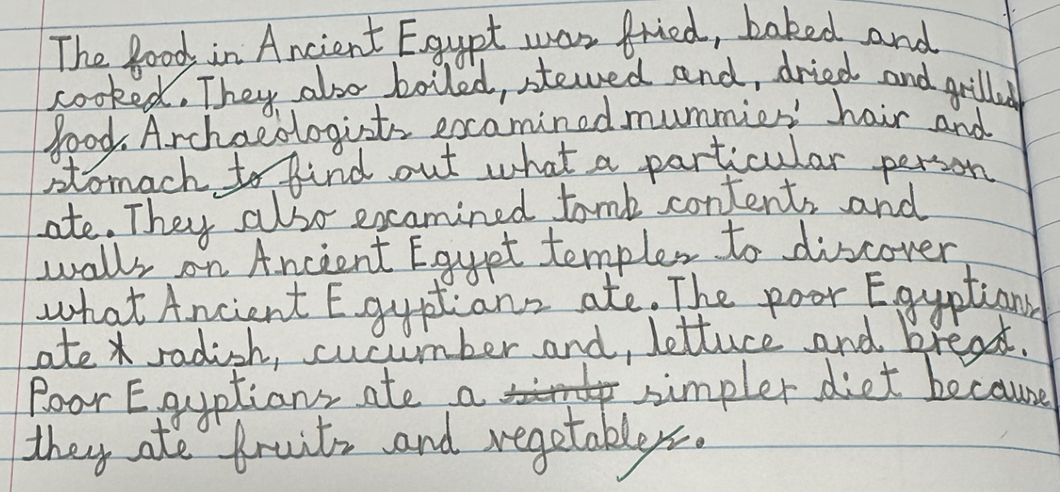 The food in Ancient Egypt was fried, baked and
cooked. They also boiled, stewed and, dried and grilled
food. Archaeologists examined mummies' hair and
stomach to find out what a particular person
ate. They also examined tomb contents and
walls on Ancient Egypt temples to discover
what Ancient Egyptians ate. The poor Egyptians
ate * radish, cucumber and, lettuce and bread.
Poor Egyptians ate a simpler diet because
they ate fruits and vegetables.